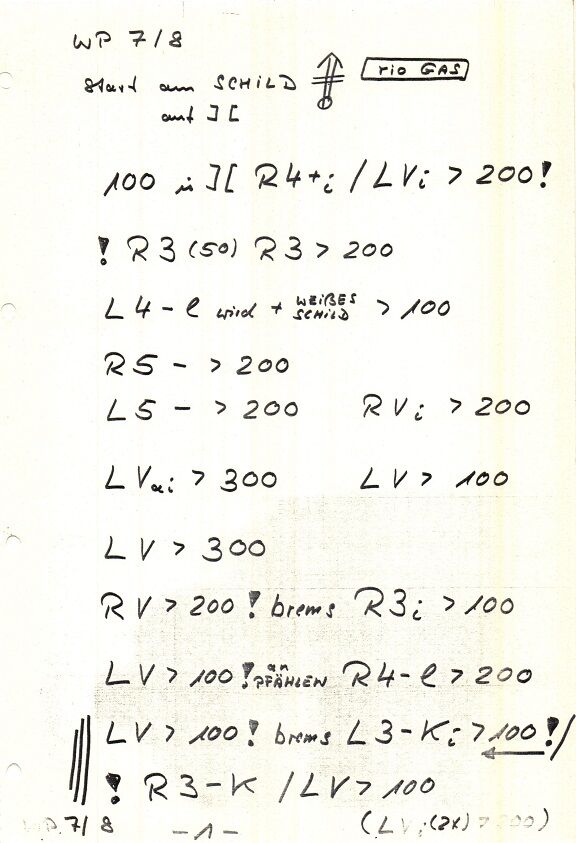 WP 7/8
Start am SCHILD rio GAS
auf ][
100 in ][ R4+i / LVi > 200!
! R3 (50) R3 > 200
L4-l wird + WEIßES SCHILD > 100
R5 - > 200
L5 - > 200 RVi > 200
LVai > 300 LV > 100
LV > 300
RV > 200 ! brems R3i > 100
LV > 100 ! an PFÄHLEN R4-l > 200
LV > 100 ! brems L3-Ki > 100 !/
! R3-K / LV > 100
WP 7/8 -1- (LVi (2x) > 300)